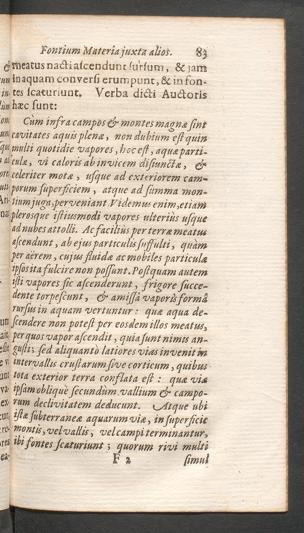 Fontium Materia juxta alios. 83
meatus nacti ascendunt sursum, & jam
in aquam conversi erumpunt, & in fon-
tes scaturiunt. Verba dicti Auctoris
hæc sunt:
Cùm infra campos & montes magnæ sint
cavitates aquis plenæ, non dubium est quin
multi quotidie vapores, hoc est, aquæ parti-
culæ, vi caloris ab invicem disiunctæ, &
celeriter motæ, usque ad exteriorem cam-
porum superficiem, atque ad summa mon-
tium juga, perveniant. Videmus enim, etiam
plerosque istiusmodi vapores ulteriùs usque
ad nubes attolli. Ac faciliùs per terræ meatus
ascendunt, ab ejus particulis suffulti, quàm
per aërem, cujus fluidæ ac mobiles particulæ
ipsos ita fulcire non possunt. Postquam autem
isti vapores sic ascenderunt, frigore succe-
dente torpescunt, & amissâ vaporis formâ
rursus in aquam vertuntur: quæ aqua de-
scendere non potest per eosdem illos meatus,
per quos vapor ascendit, quia sunt nimis an-
gusti: sed aliquantò latiores vias invenit in
intervallis crustarum sive corticum, quibus
tota exterior terra conflata est: quæ viæ
ipsam obliquè secundùm vallium & campo-
rum declivitatem deducunt. Atque ubi
istæ subterraneæ aquarum viæ, in superficie
montis, vel vallis, vel campi terminantur,
ibi fontes scaturiunt; quorum rivi multi
F 2 simul